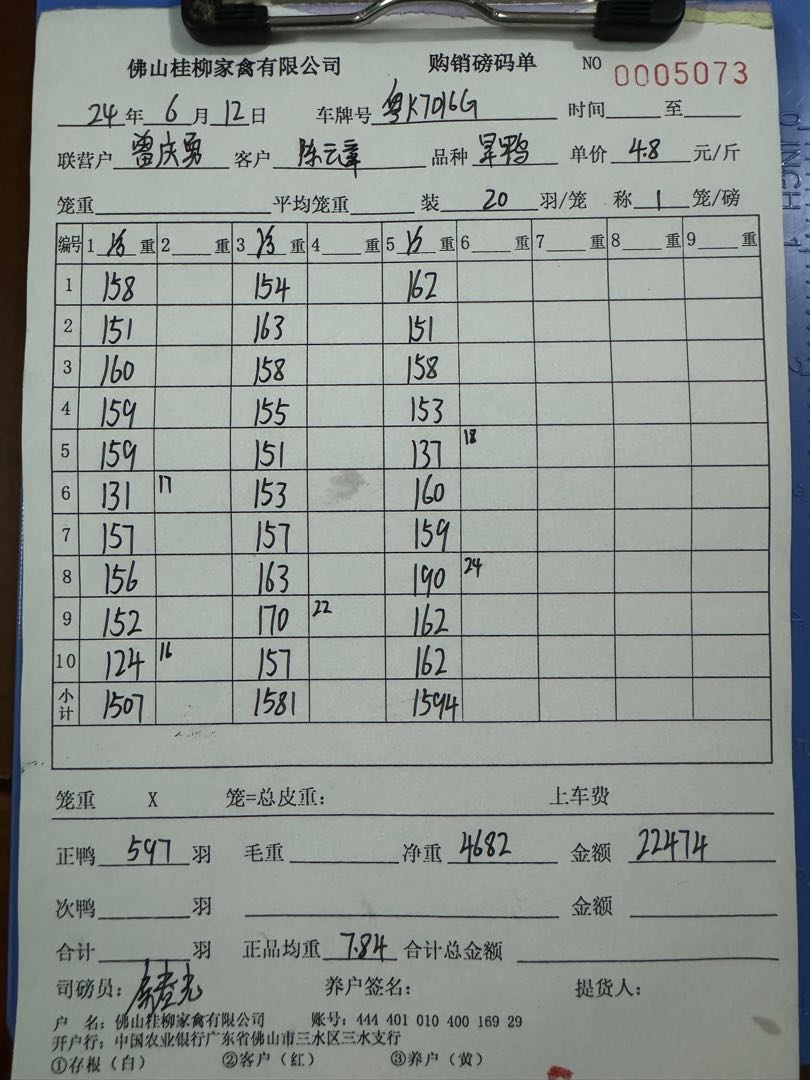 佛山桂柳家禽有限公司 购销磅码单 NO 0005073
24年 6月 12日 车牌号 粤K7016G 时间 至
联营户 曾庆勇 客户 陈云章 品种 旱鸭 单价 4.8 元/斤
笼重 平均笼重 装 20 羽/笼 称 1 笼/磅
编号 1 净重 2 重 3 净重 4 重 5 净重 6 重 7 重 8 重 9 重
1 158 154 162
2 151 163 151
3 160 158 158
4 159 155 153
5 159 151 137 18
6 131 17 153 160
7 157 157 159
8 156 163 190 24
9 152 170 22 162
10 124 16 157 162
小计 1507 1581 1594
笼重 X 笼=总皮重: 上车费
正鸭 597 羽 毛重 净重 4682 金额 22474
次鸭 羽 金额
合计 羽 正品均重 7.84 合计总金额
司磅员: 养户签名: 提货人:
户 名: 佛山桂柳家禽有限公司 账号: 444 401 010 400 169 29
开户行: 中国农业银行广东省佛山市三水区三水支行
①存根(白) ②客户(红) ③养户(黄)